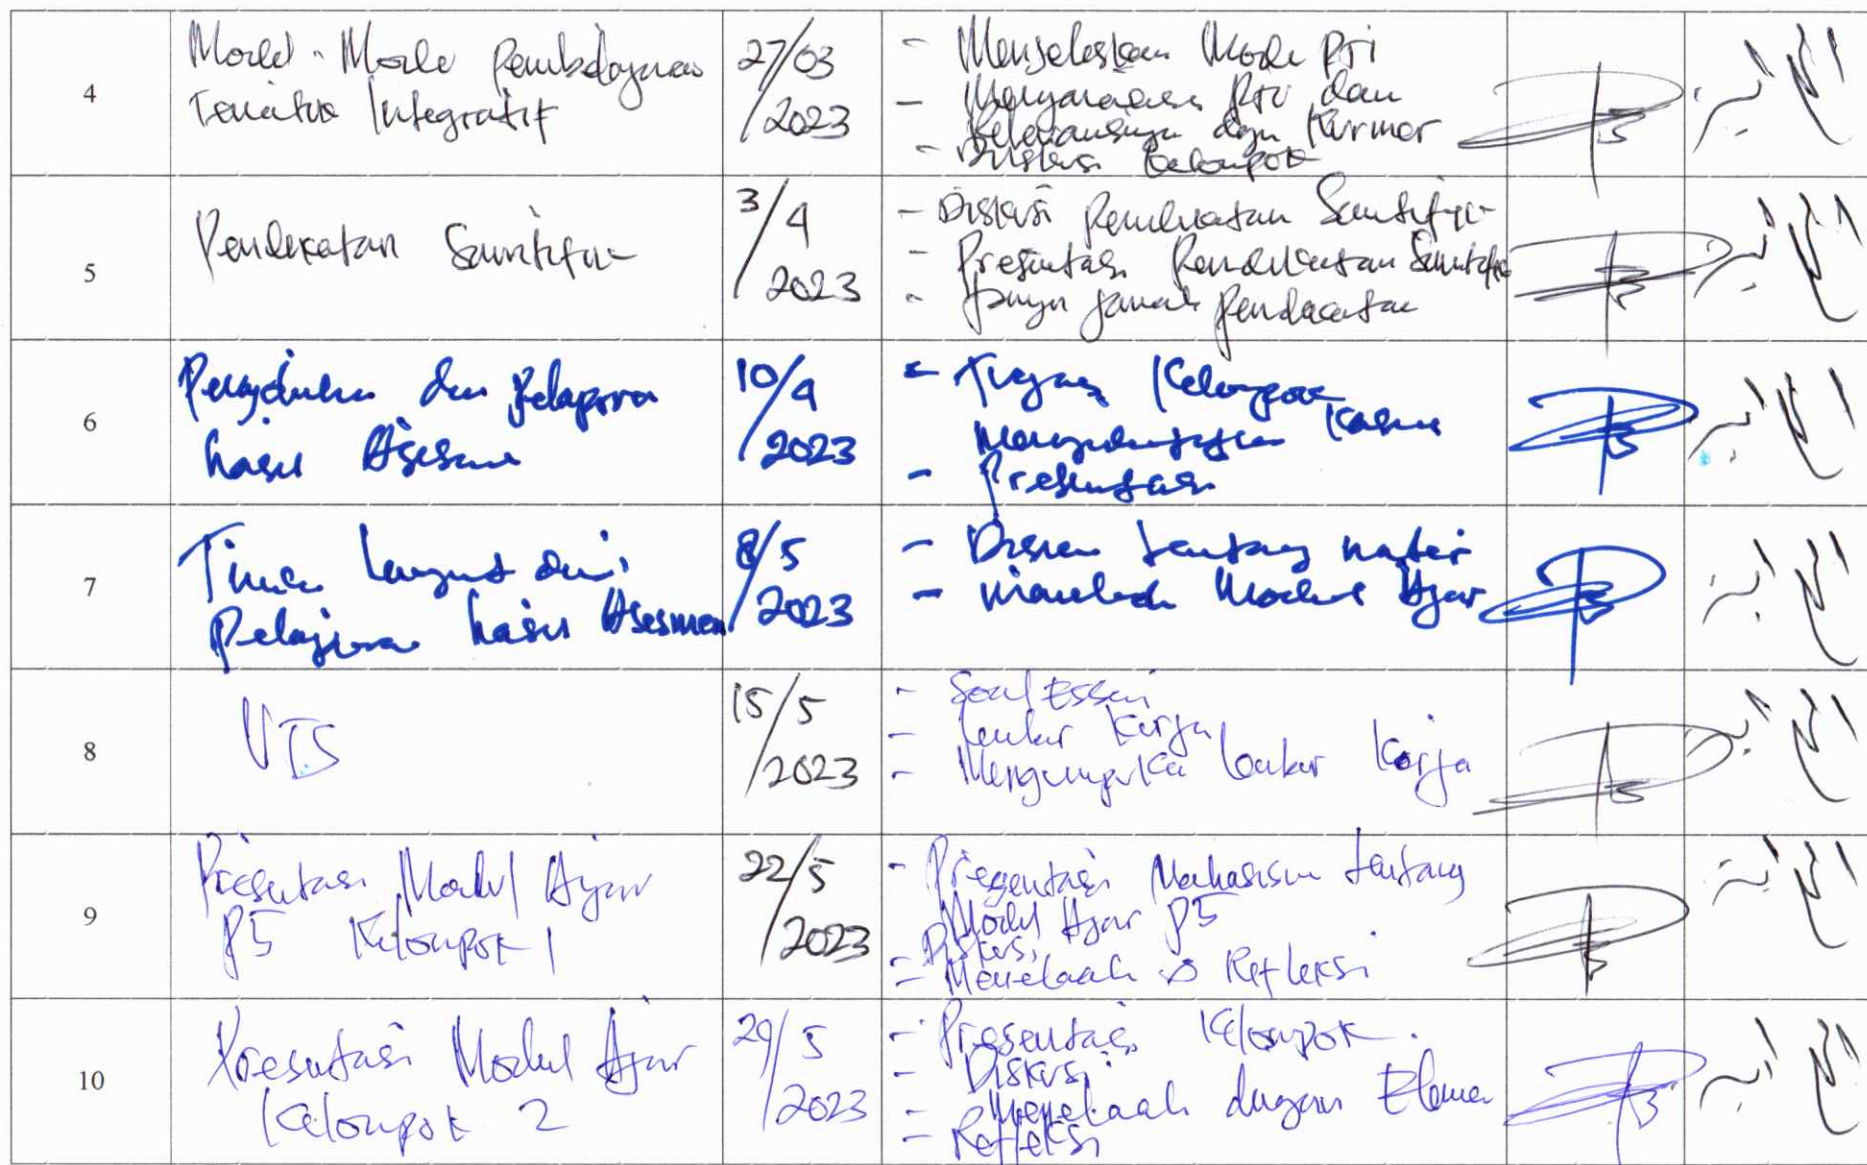 4
Model - Mode Pembelajaran
Tematik Integratif
27/03
/2023
- Menjelaskan Mode PTI
- PTI dan
Relevansinya dgn Kurmer
- Diskusi Kelompok
5
Pendekatan Saintifik
3/4
2023
- Diskusi Pendekatan Saintifik
- Presentasi Pendekatan Saintifik
- Tanya jawab Pendekatan
6
dan Pelaporan
hasil Asesmen
10/4
2023
- Tugas Kelompok
Kasus
- Presentasi
7
Tindak lanjut dari
hasil Asesmen
8/5
2023
- Diskusi tentang materi
- menelaah Modul Ajar
8
UTS
15/5
/2023
- Soal Essai
- Lembar Kerja
- Mengumpulkan lembar Kerja
9
Presentasi Modul Ajar
P5 Kelompok 1
22/5
/2023
- Presentasi Mahasiswa tentang
Modul Ajar P5
- Diskusi
- Menelaah Refleksi
10
Presentasi Modul Ajar
Kelompok 2
29/5
2023
- Presentasi Kelompok.
- Diskusi
- Menelaah dengan Elemen
- Refleksi